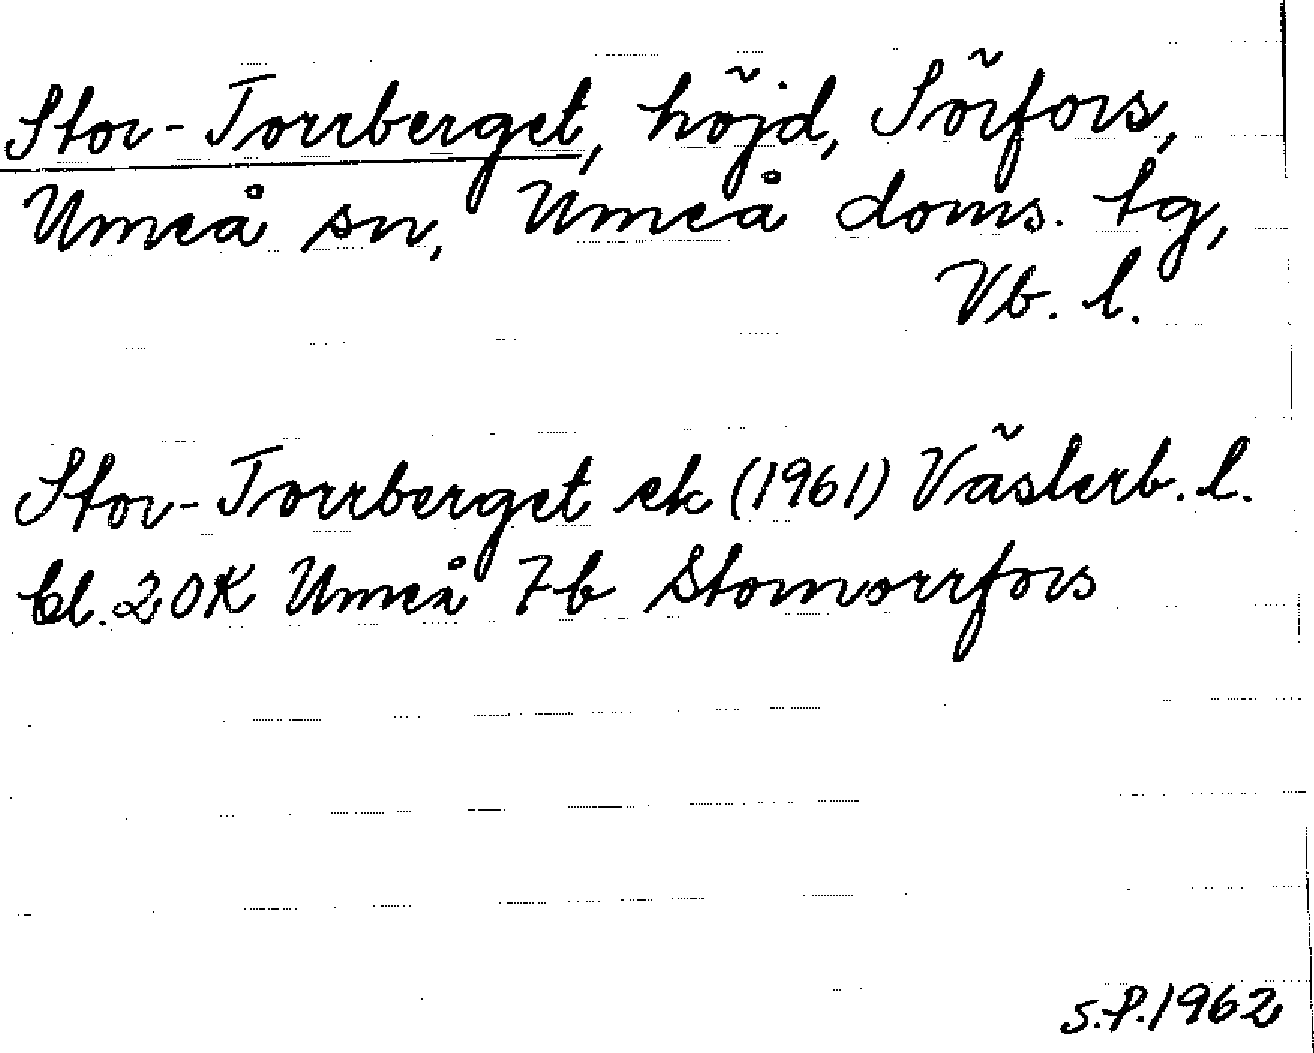 Stor-Torrberget, höjd, Sörfors,
Umeå sn, Umeå doms. tg,
Vb. l.
Stor-Torrberget ek (1961) Västerb. l.
bl. 20K Umeå 7b Stornorrfors
S.P. 1962